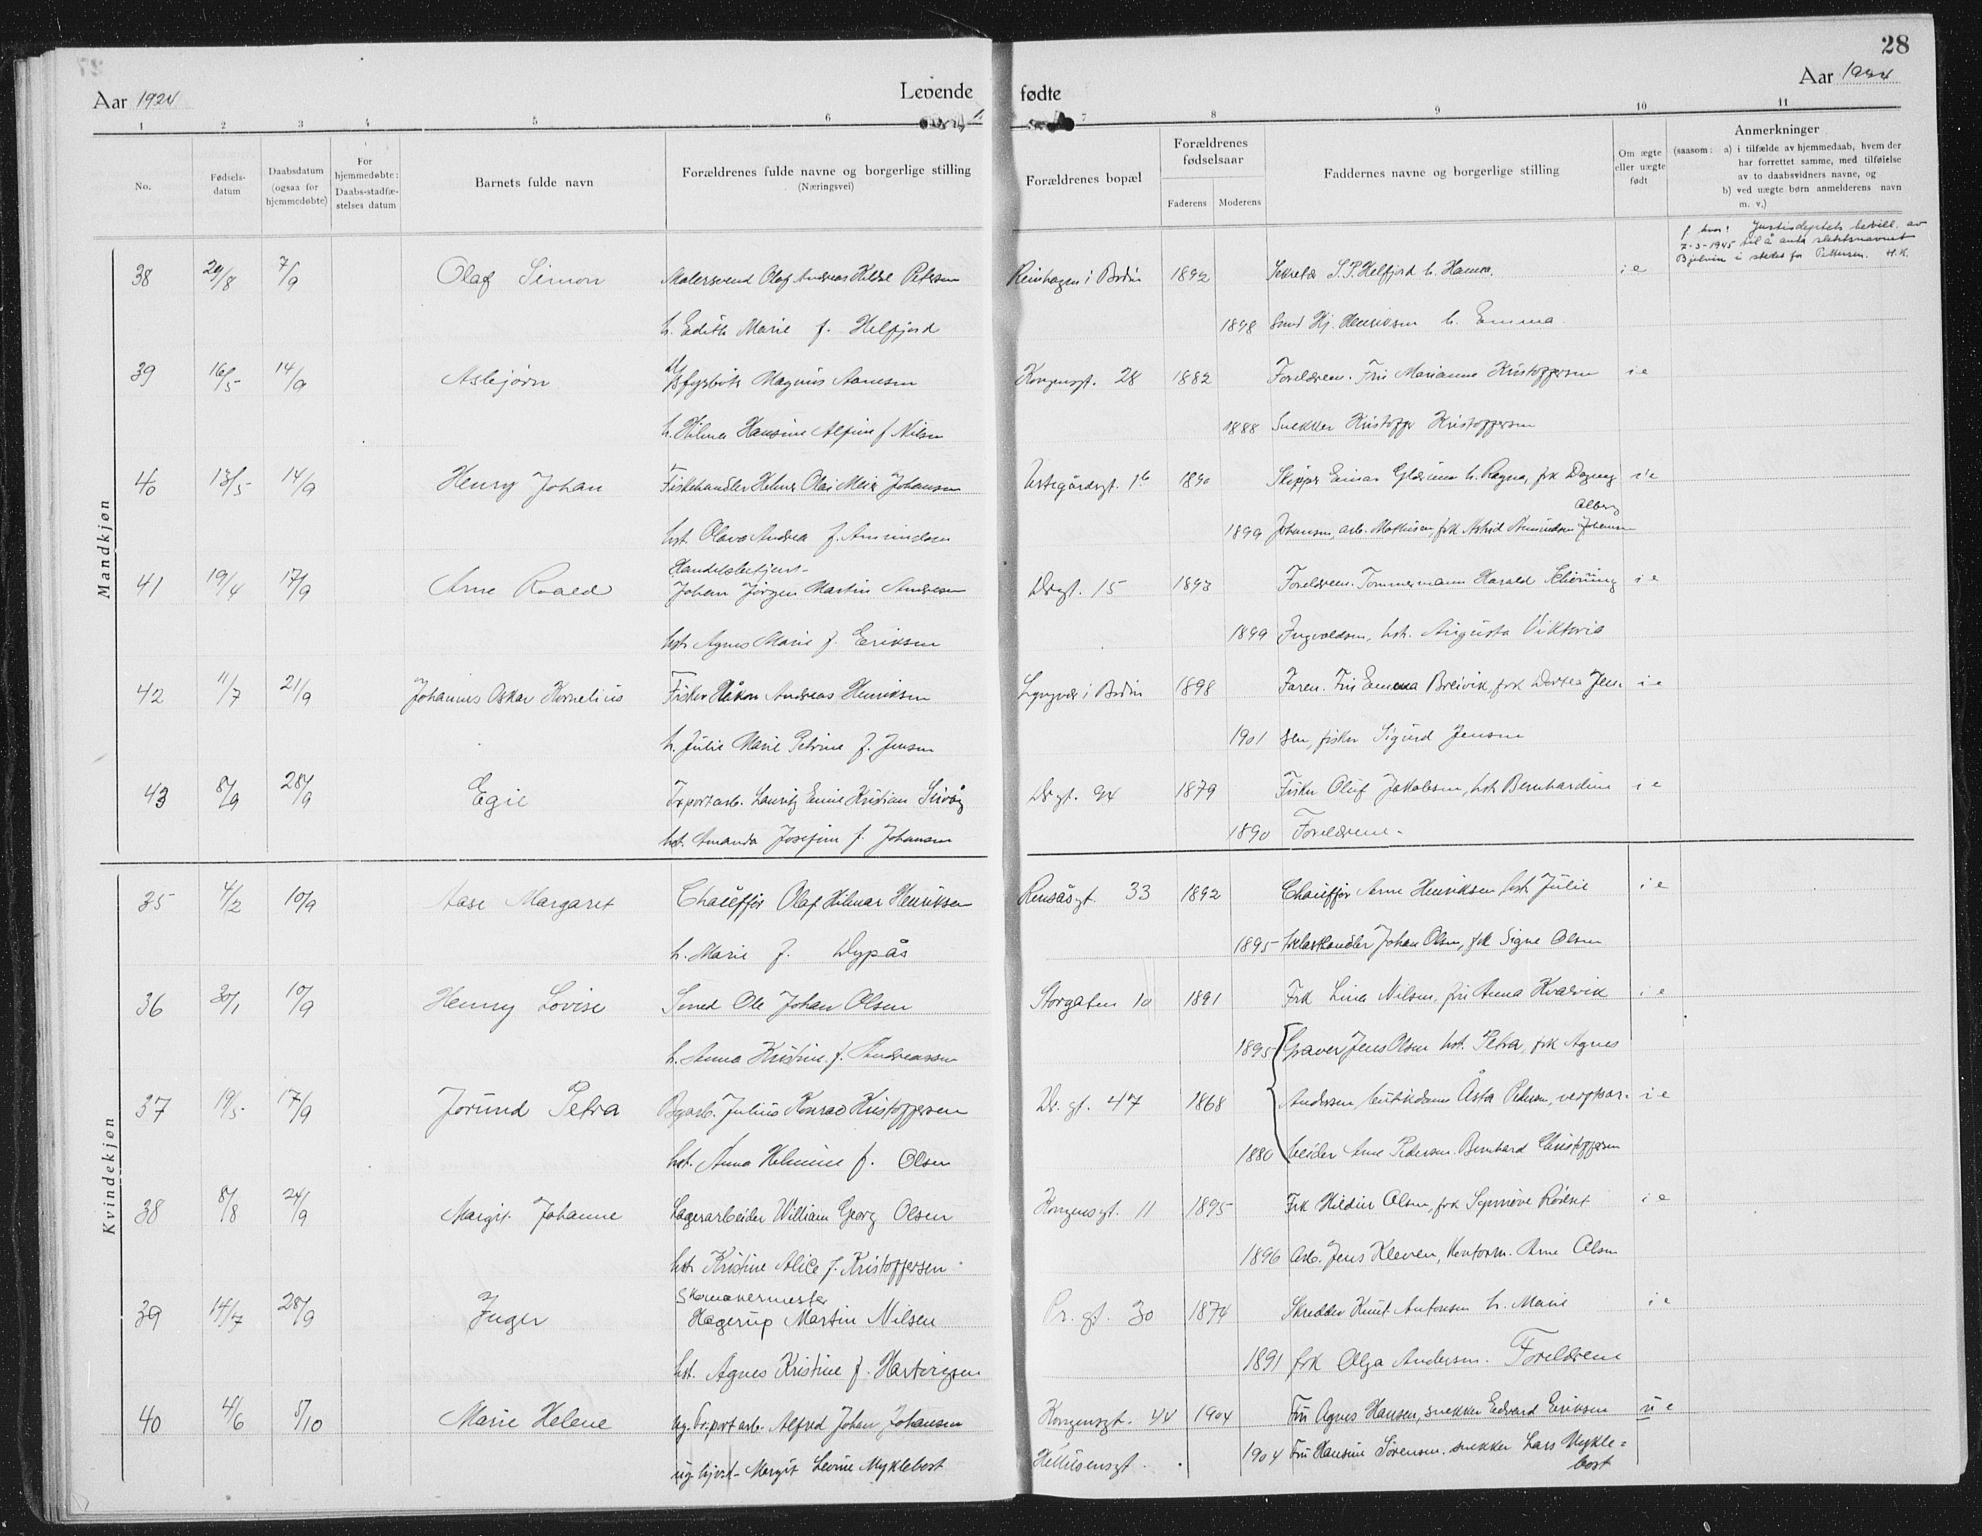 28
Aar 1924
Levende
fødte
Aar 1924
1 2 3 4 5 6 7 8 9 10 11
No.
Fødsels-
datum
Daabsdatum
(ogsaa for
hjemmedøbte)
For
hjemmedøbte:
Daabs-stadfæ-
stelses datum
Barnets fulde navn
Forældrenes fulde navne og borgerlige stilling
(Næringsvei)
Forældrenes bopæl
Forældrenes
fødselsaar
Faderens
Moderens
Faddernes navne og borgerlige stilling
Om ægte
eller uægte
født
Anmerkninger
(saasom: a) i tilfælde av hjemmedaab, hvem der
har forrettet samme, med tilføielse
av to daabsvidners navne, og
b) ved uægte børn anmelderens navn
m. v.)
Mandkjøn
f. hver: Justisdeptets bevill. av
7-3-1945 til å anta slektsnavnet
Bjelvin i stedet for Pettersen. H.K.
38 29/8 7/9 Olaf Simon Malersvend Olaf Andreas Petersen Reinhagen i Bodin 1892 S. P. Helfjord h. Hanna i e
h. Edith Marie f. Helfjord 1898 Smed Hj. Henriksen h. Emma
39 16/5 14/9 Asbjørn Magnus Kongensgt. 28 1882 Forældrene. Fru Marianne Kristoffersen i e
h. Hilma Hansine Alfine f. Nilsen 1888 Snekker Kristoffer Kristoffersen
40 13/5 14/9 Henry Johan Fiskehandler Helmer Olai Meier Johansen 1b 1890 Skipper Einar h. Ragna, frk Dagny i e
Alberg
hst. Olava Andrea f. Amundsen 1899 Johansen, arb. Mathisen, frk Astrid Amundsen Johansen
Handelsbetjent-
41 19/4 17/9 Arne Roald Johan Jørgen Martin Andresen Dr.gt. 15 1893 Foreldrene. Tømmermann Harald i e
hst. Agnes Marie f. Eriksen 1899 Ingvaldsen, hst. Augusta Viktoria
42 11/7 21/9 Johannes Oskar Kornelius Fisker Håkon Andreas Henriksen Lyngvær i Bodin 1898 Faren. Fru Emma Breivik, frk Dortea Jen- i e
h. Julie Marie Petrine f. Jensen 1901 sen, fisker Sigurd Jensen
43 8/9 28/9 Egil Tr.portarb. Lauritz Emil Kristian Dr.gt. 94 1879 Fisker Oluf Jakobsen, hst. Bernhardine i e
hst. Amanda Josefine f. Johansen 1890 Foreldrene.
Kvindekjøn
35 4/2 10/9 Aase Margaret Chauffør Olaf Hilmar Henriksen Rensåsgt. 33 1892 Chauffør Arne Henriksen hst. Julie i e
h. Marie f. Dypås 1895 Johan Olsen, frk Signe Olsen
36 30/1 10/9 Henny Lovise Smed Ole Johan Olsen Storgaten 10 1891 Frk Lina Nilsen, fru Anna Kvalvik i e
h. Anna Kristine f. Andreassen 1895 Graver Jens Olsen hst. Petra, frk Agnes
37 19/5 17/9 Jorund Petra Byarb. Julius Konrad Kristoffersen Dr. gt. 47 1868 Andersen, butikdame Åsta Pedersen, verftsar- i e
hst. Anna Helmine f. Olsen 1880 beider Arne Pedersen. Bernhard Christoffersen
38 8/8 24/9 Margit Johanne Lagerarbeider William Georg Olsen Kongensgt. 11 1895 Frk Hildur Olsen, frk Synnøve i e
hst. Kristine Alice f. Kristoffersen 1896 Arb. Jens Kleven, kontorm. Arne Olsen
Skomakermester
39 14/7 28/9 Inger Hagerup Martin Nilsen Pr. gt. 30 1874 Skredder Knut Antonsen h. Marie i e
hst. Agnes Kristine f. Hartvigsen 1891 frk Olga Andersen. Foreldrene
40 4/6 5/10 Marie Helene ug. tr.portarb. Alfred Johan Johansen Kongensgt. 44 1904 Fru Agnes Hansen, snekker Edvard Eriksen u e
ug. Margit Levine Myklebost 1904 Fru Hansine Sørensen, snekker Lars Mykle=
bost